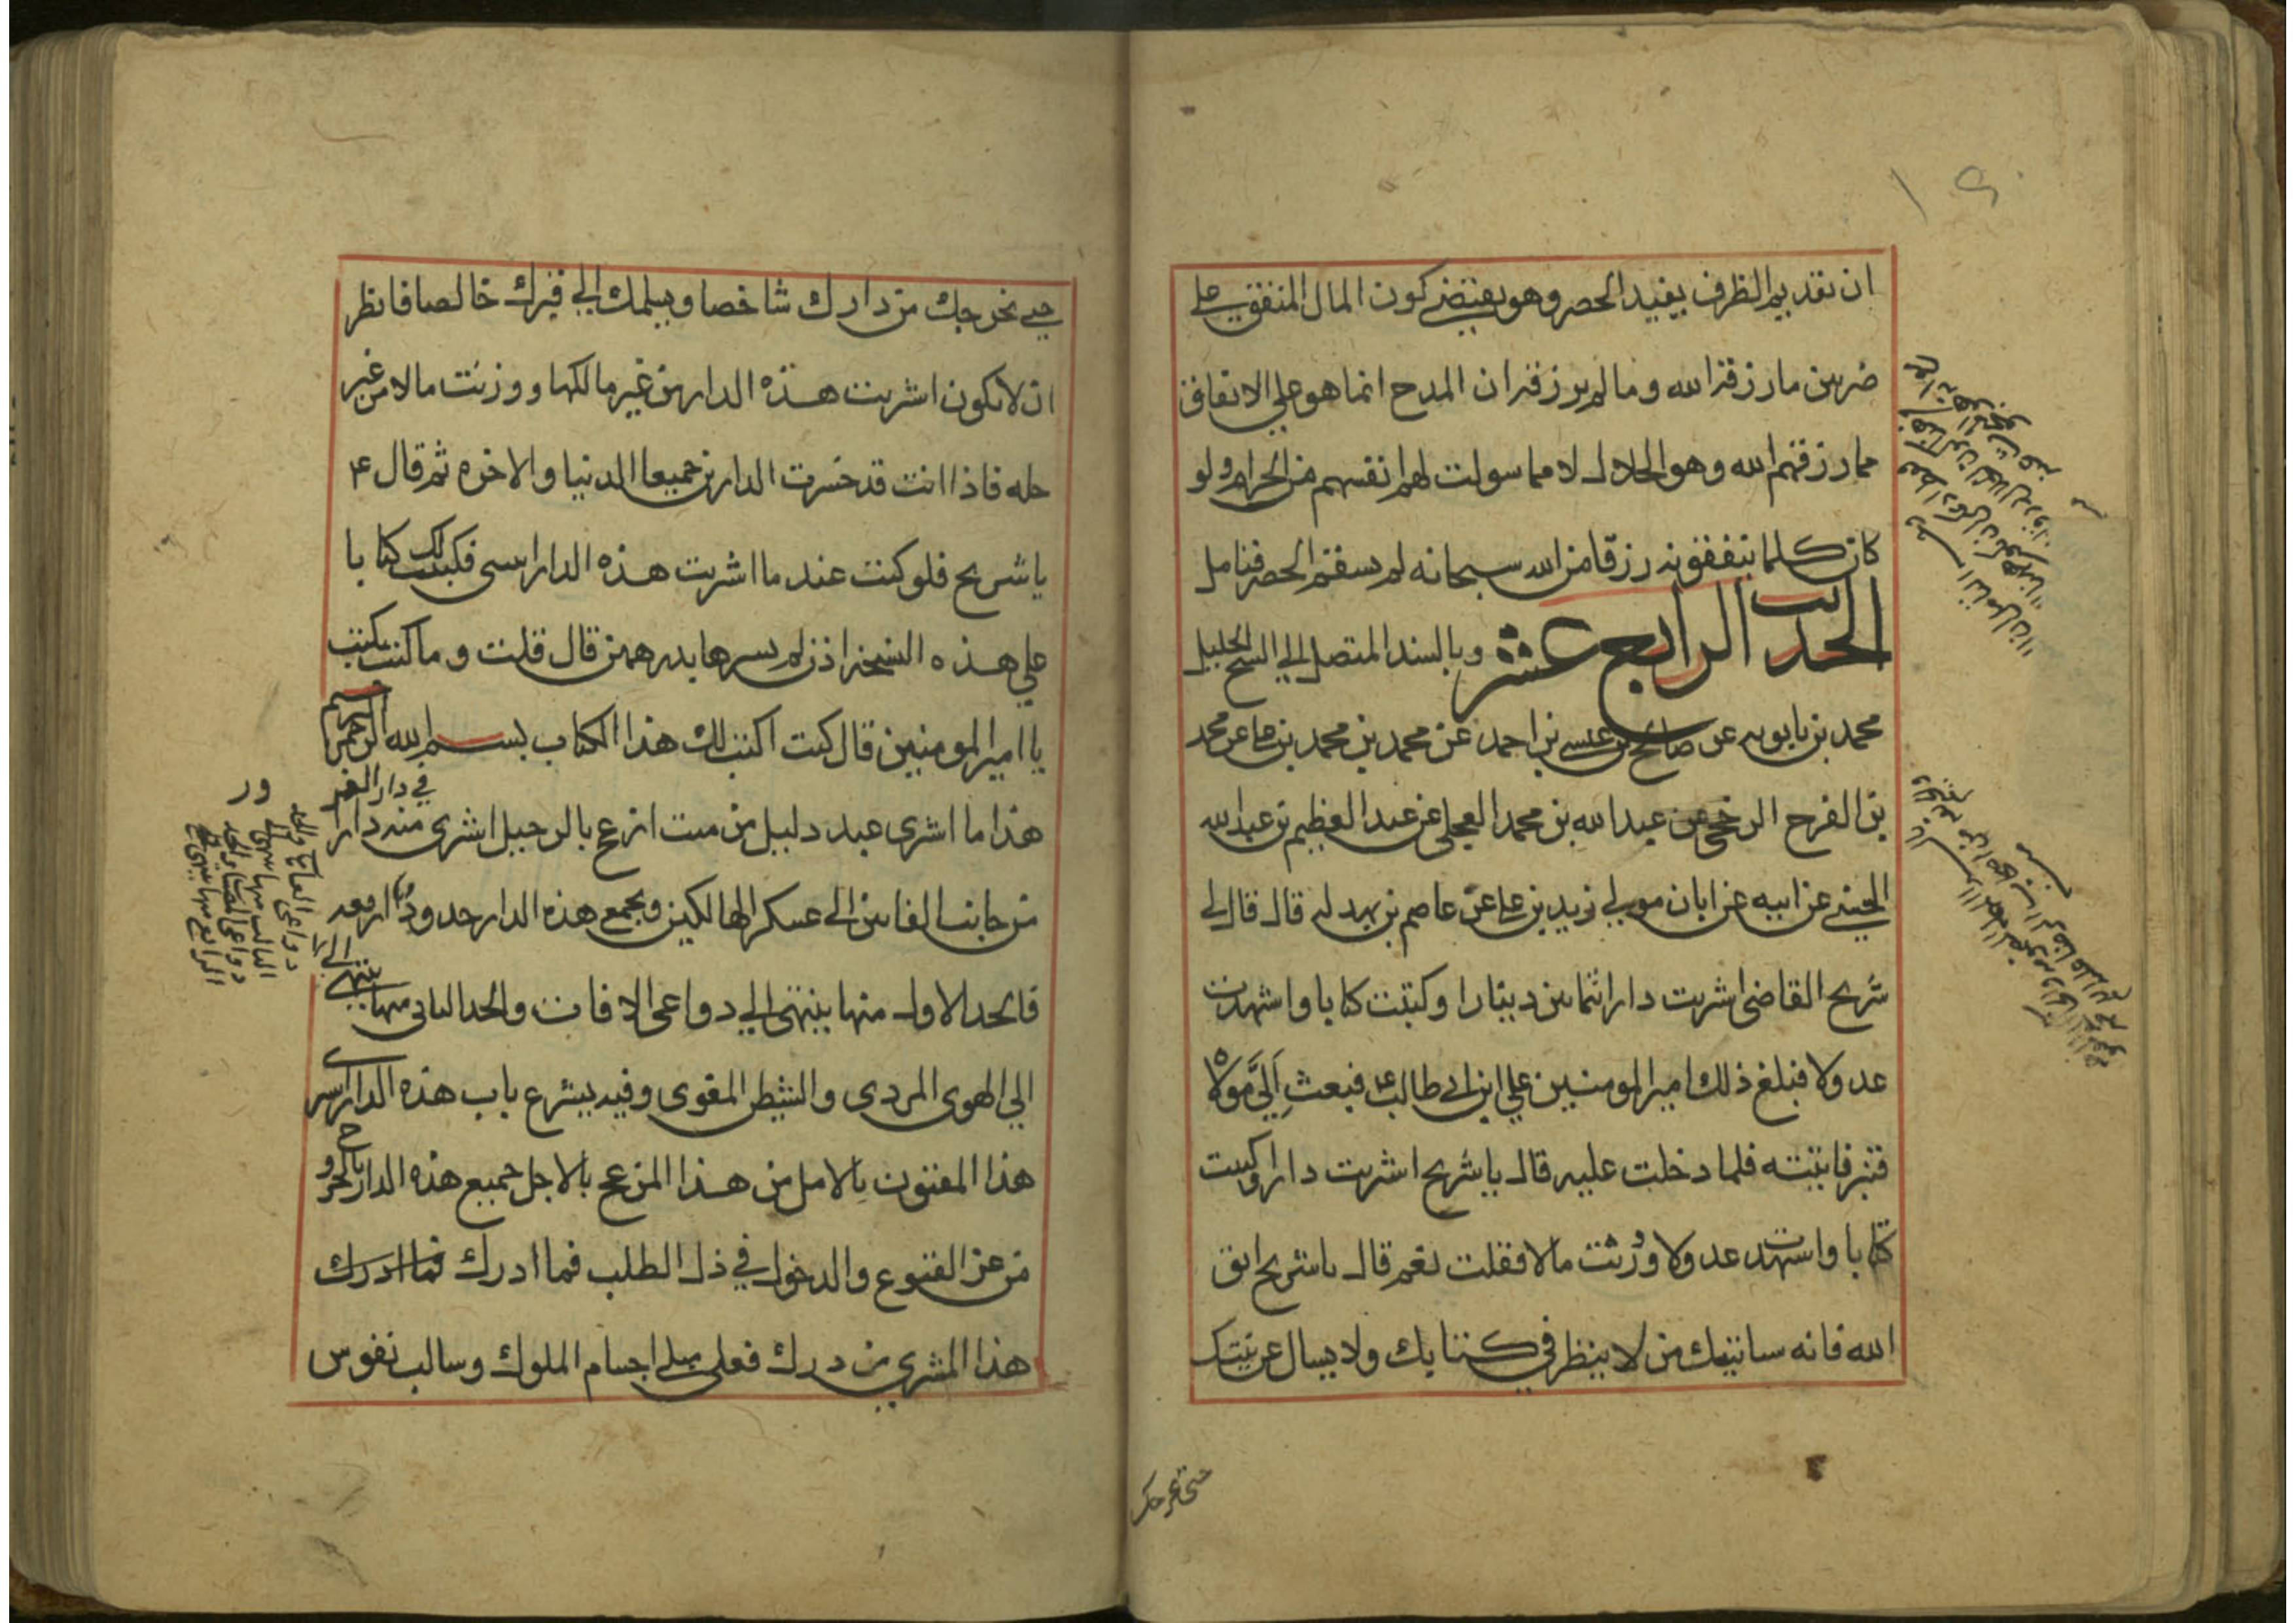 ان تقديم الظرف يفيد الحصر وهو يقتضي كون المال المنفق علي
ضربين مارزقه الله ومالم يرزقه ان المدح انما هو علي الانفاق
مما رزقهم الله وهو الحلال لا مما سولت لهم انفسهم من الحرام ولو
كان كلما ينفقونه رزقا من الله سبحانه لم يستقم الحصر فتامل
الحديث الرابع عشر وبالسند المتصل الي الشيخ الجليل
محمد بن بابويه عن صالح بن عيسى بن احمد عن محمد بن محمد بن علي عن محمد
بن الفرج الرخجي عن عبدالله بن محمد العجلي عن عبد العظيم بن عبدالله
الحسني عن ابيه عن ابان مولي زيد بن علي عن عاصم بن بهدله قال قال لي
شريح القاضي اشتريت دارا بثمانين دينارا وكتبت كتابا واشهدت
عدولا فبلغ ذلك امير المومنين علي ابن ابي طالب ع فبعث اِلَيَّ مولاه
قنبر فاتيته فلما دخلت عليه قال ياشريح اشتريت دارا وكتبت
كتابا واشهدت عدولا ووزنت مالا فقلت نعم قال ياشريح اتق
الله فانه سياتيك من لا ينظر في كتابك ولا يسال عن بينتك
حتى يخرجك
حتي يخرجك من دارك شاخصا ويسلمك الي قبرك خالصا فانظر
ان لا تكون اشتريت هذه الدار من غير مالكها ووزنت مالا من غير
حله فاذا انت قد خسرت الدارين جميعا الدنيا والاخره ثم قال ع
ياشريح فلو كنت عند ما اشتريت هذه الدار اتيتني فكتبت لك كتابا
علي هذه النسخه اذن لم تشترها بدرهمين قال قلت وما كنت تكتب
يا امير المومنين قال كنت اكتب لك هذا الكتاب بسم الله الرحمن الرحيم
هذا ما اشترى عبد ذليل من ميت ازعج بالرحيل اشترى منه دارا في دار الغرور
من جانب الفانين الى عسكر الهالكين وتجمع هذه الدار حدودا اربعه
فالحد الاول منها ينتهى الي دواعى الافات والحد الثانى منها ينتهي الى
دواعى العاهات والحد
الثالث منها ينتهى الى
دواعى المصيبات والحد
الرابع منها ينتهى
الي الهوى المردى والشيطن المغوى وفيه يشرع باب هذه الدار اشترى
هذا المفتون بالامل من هذا المزعج بالاجل جميع هذه الدار بالخروج
من عز القنوع والدخول في ذل الطلب فما ادرك فما ادرك
هذا المشتري من درك فعلى مبلي اجسام الملوك وسالب نفوس